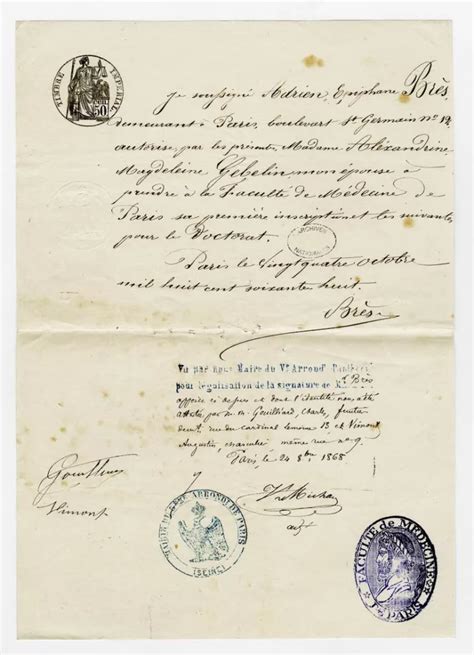 TIMBRE IMPÉRIAL
50
je soussigné Adrien, Epiphane Brès,
demeurant à Paris, boulevart St Germain no 12
autorise, par les présentes, Madame Alexandrine
Magdeleine Gebelin mon épouse à
prendre à la Faculté de Médecine de
Paris sa première inscription et les suivantes
pour le Doctorat.
ARCHIVES NATIONALES
Paris le vingt quatre octobre
mil huit cent soixante huit.
Brès
Vu par nous Maire du Ve Arrondt
pour légalisation de la signature de M.
Brès
apposée ci dessus et dont l'identité nous a été
par m.m. Gouilliard, Charles, fruitier
rue du cardinal Lemoine 13 et Vimont
Augustin, même rue no 9.
Paris, le 24 8bre 1868
Vimont
MAIRIE DU 5EME ARRONDT DE PARIS
(SEINE)
FACULTÉ de MÉDECINE
PARIS